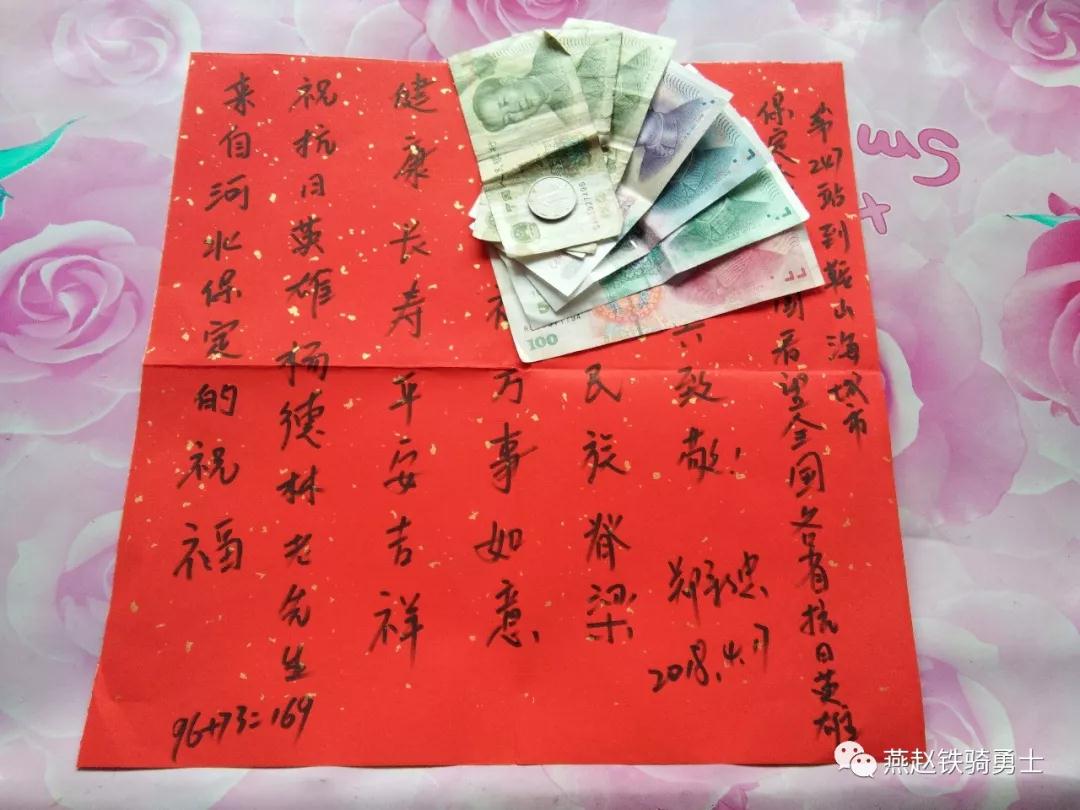 来自河北保定的祝福
祝抗日英雄杨德林老先生
健康长寿平安吉祥
万事如意
民族脊梁
致敬！
2018.4.17
保定 看望全国各省抗日英雄
第247站到鞍山海城市
96+73=169
100
sm
燕赵铁骑勇士